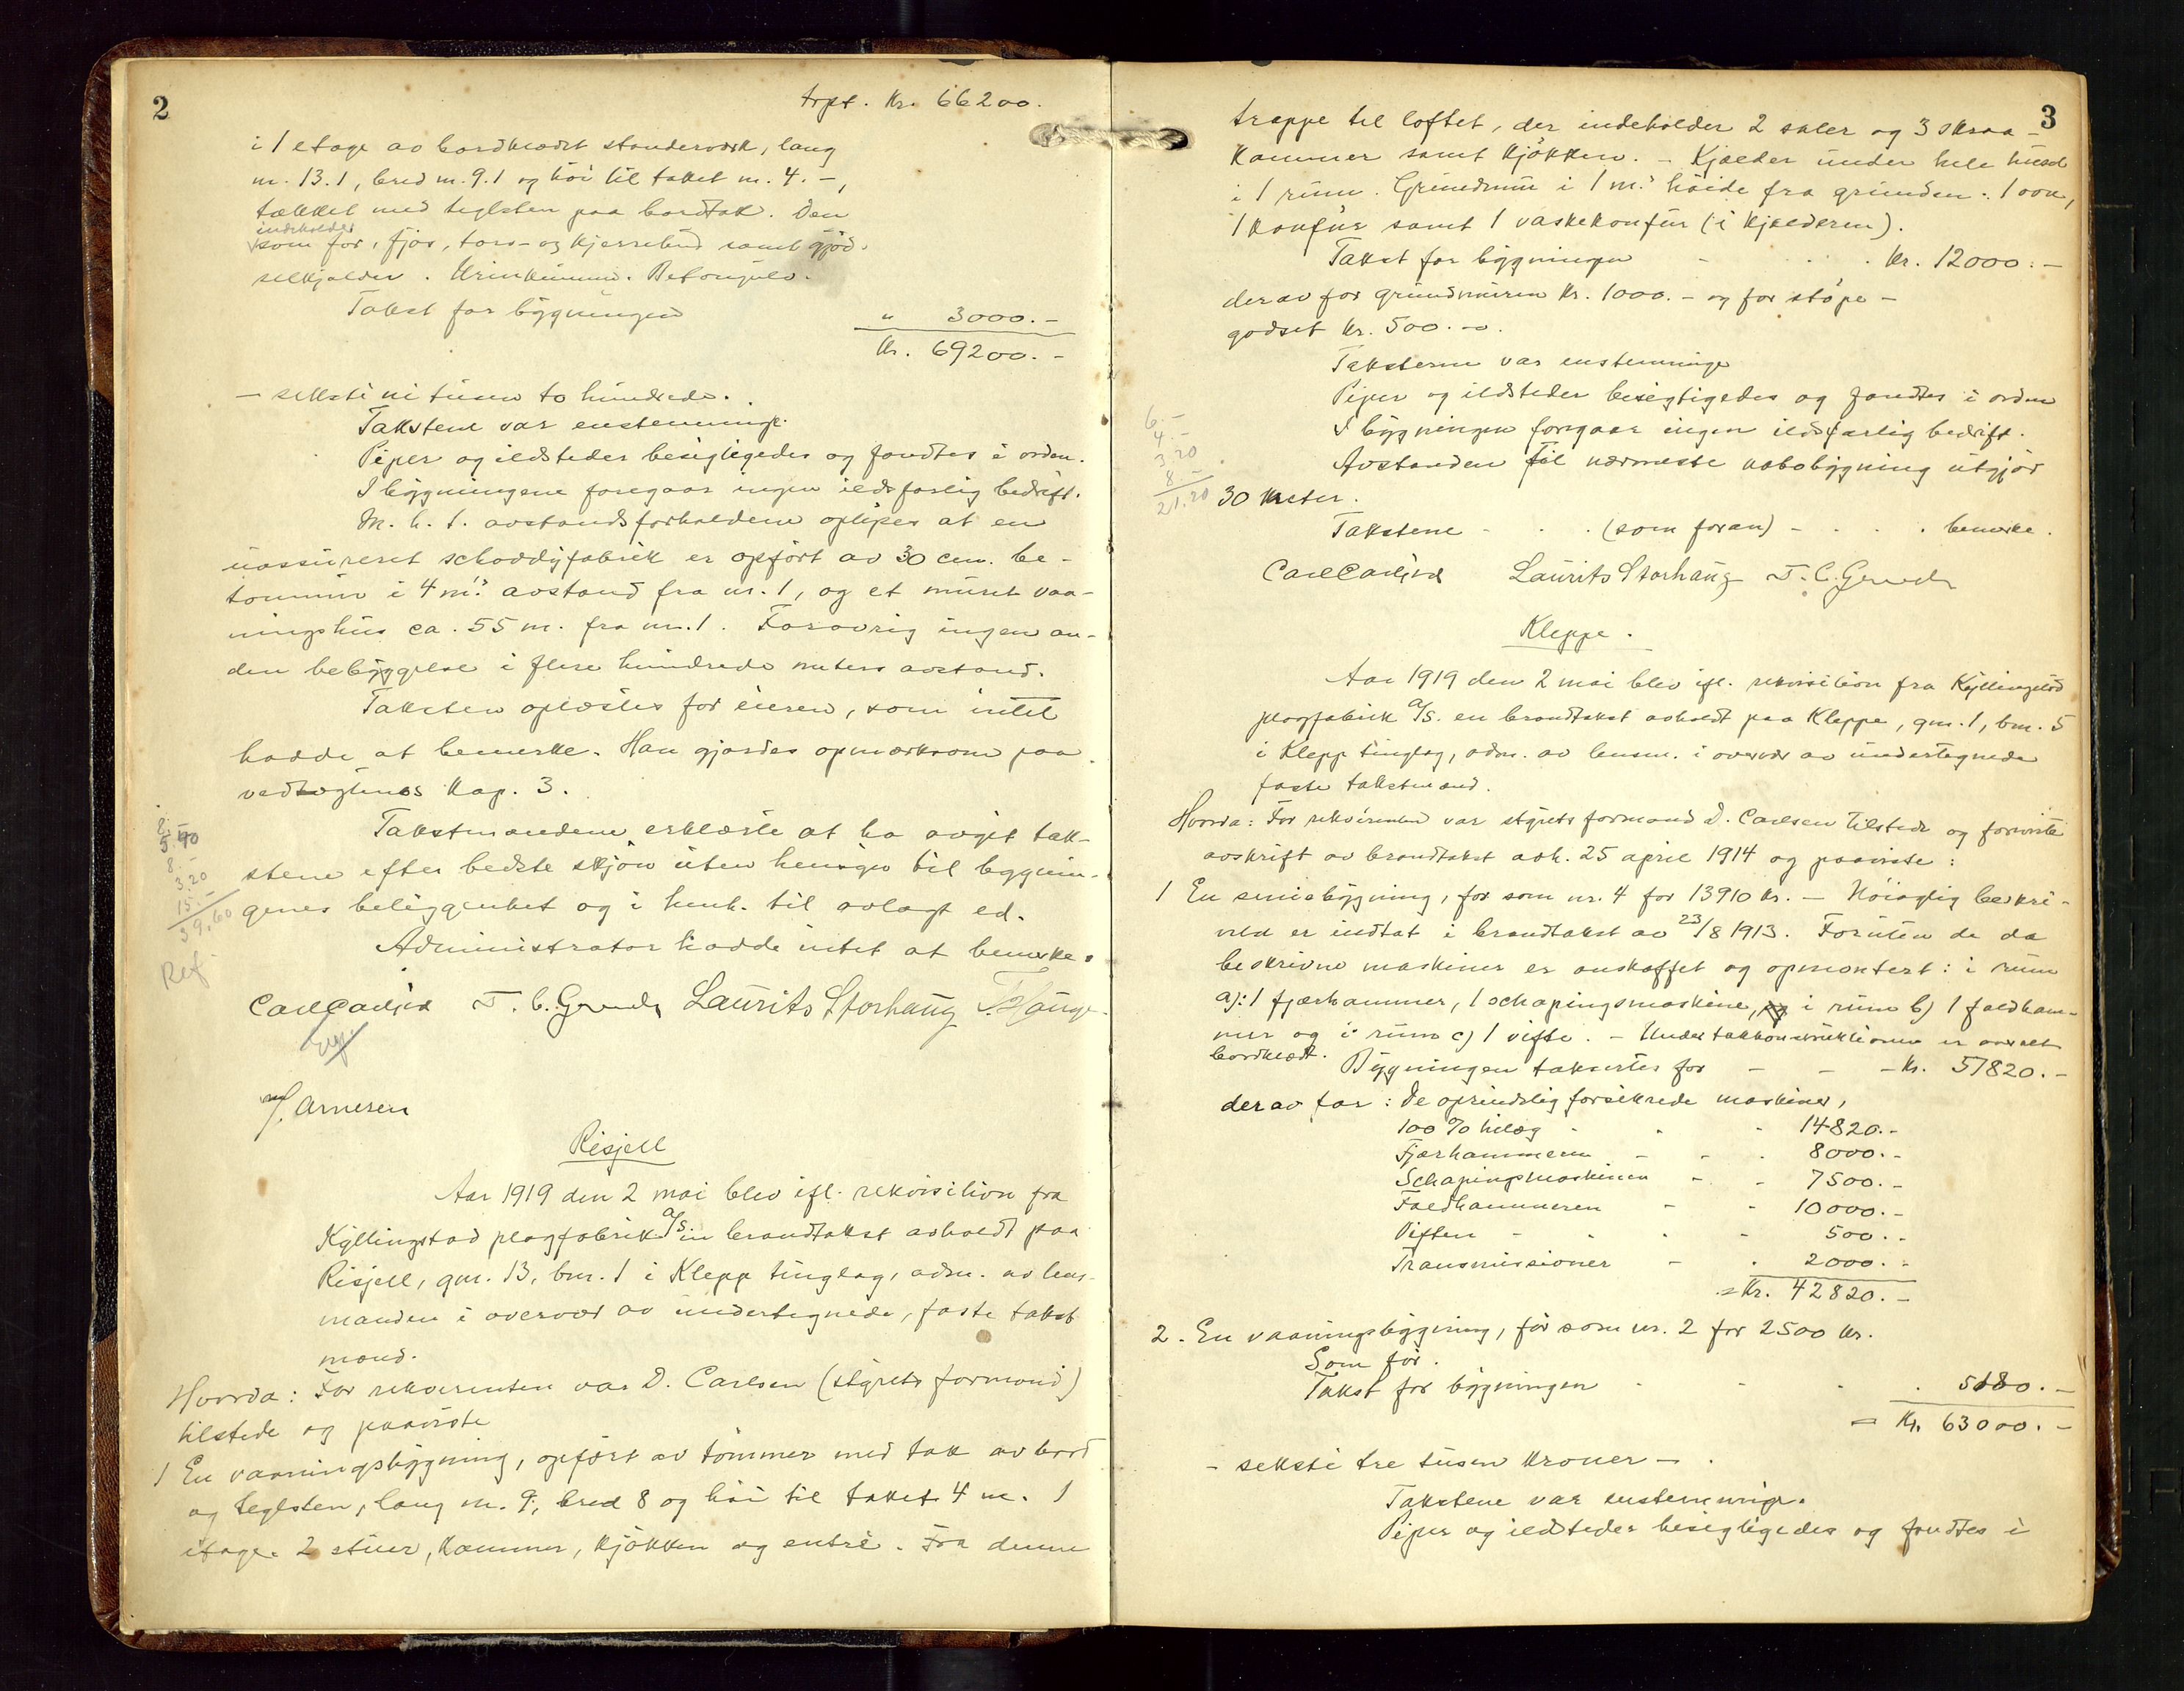 2
trpt. Kr. 66200.
i 1 etage av bordklædt stenderverk, lang
m. 13.1, bred m. 9.1 og høi til taket m. 4.-,
tækket med teglsten paa bordtak. Den
indeholder
som før, fjøs, torv- og kjerrebod samt gjød-
selkjelder. Betongulv.
Takst for bygningen
" 3000.-
Kr. 69200.-
- seksti ni tusen to hundrede.
Takstene var enstemmige.
Piper og ildsteder besigtigedes og fandtes i orden.
I bygningene foregaar ingen ildsfarlig bedrift.
M. h. t. avstandsforholdene oplyses at en
uassureret schoddyfabrik er opført av 30 cm. be-
tonmur i 4 m.s avstand fra nr. 1, og et muret vaa-
ningshus ca. 55 m. fra nr. 1. Forøvrig ingen an-
den bebyggelse i flere hundrede meters avstand.
Taksten oplæstes for eieren, som intet
hadde at bemerke. Han gjordes opmerksom paa
vedtægtenes kap. 3.
Takstmændene erklærte at ha avgit tak-
stene efter bedste skjøn uten hensyn til bygnin-
genes beliggenhet og i henh. til avlagt ed.
Administrator hadde intet at bemerke.
5.40
8.-
3.20
15.-
39.60
Ref.
Carl Carlsen T. C. Grude Laurits Storhaug T. Hauge
Arnesen
Risjell
Aar 1919 den 2 mai blev ifl. rekvisition fra
Kyllingstad plogfabrik A/S. en brandtakst avholdt paa
Risjell, gnr. 13, bnr. 1 i Klepp tinglag, adm. av lens-
manden i overvær av undertegnede, faste takst
mænd.
Hvorda: For rekvirenten var D. Carlsen (styrets formand)
tilstede og paaviste
1 En vaaningsbygning, opført av tømmer med tak av bord
og teglsten, lang m. 9, bred 8 og høi til taket 4 m. 1
etage. 2 stuer, kammer, kjøkken og entré. Fra denne
3
trappe til loftet, der indeholder 2 saler og 3 skraa-
kammer samt kjøkken. - Kjelder under hele huset
i 1 rum. Grundmur i 1 m.s høide fra grunden. 1 ovn,
1 komfur samt 1 vaskekomfur (i kjelderen).
Takst for bygningen - . . Kr. 12000.-
derav for grundmuren kr. 1000.- og for støpe-
godset kr. 500.-.
Taksterne var enstemmige
Piper og ildsteder besigtigedes og fandtes i orden
I bygningen foregaar ingen ildsfarlig bedrift.
Avstanden til nærmeste nabobygning utgjør
30 meter.
6.-
4.-
3.20
8.-
21.20
Takstene - . . (som foran) - . . . bemerke.
Carl Carlsen Laurits Storhaug T. C. Grude
Kleppe.
Aar 1919 den 2 mai blev ifl. rekvisition fra Kyllingstad
plogfabrik A/S. en brandtakst avholdt paa Kleppe, gnr. 1, bnr. 5
i Klepp tinglag, adm. av lensm. i overvær av undertegnede
faste takstmænd.
Hvorda: For rekvirenten var styrets formand D. Carlsen tilstede og foreviste
avskrift av brandtakst avh. 25 april 1914 og paaviste:
1 En smiebygning, før som nr. 4 for 13910 kr. - Nøiagtig beskri-
velse er indtat i brandtakst av 23/8 1913. Foruten de da
beskrivne maskiner er anskaffet og opmontert: i rum
a): 1 fjærhammer, 1 schapingsmaskine, i rum b) 1 faldham-
mer og i rum c) 1 vifte. - Under takkonstruktionen er overalt
bordklædt.
Bygningen takseres for - - - Kr. 57820.-
derav for: De oprindelig forsikrede maskiner,
100 % tillæg - . . 14820.-
Fjærhammeren - - . 8000.-
Schapingsmaskinen - . 7500.-
Faldhammeren - - 10000.-
Viften - . . - 500.-
Transmissioner - . 2000.-
= Kr. 42820.-
2. En vaaningsbygning, før som nr. 2 for 2500 kr.
Som før.
Takst for bygningen . - . . 5180.-
= Kr. 63000.-
- seksti tre tusen kroner - .
Takstene var enstemmige.
Piper og ildsteder besigtigedes og fandtes i